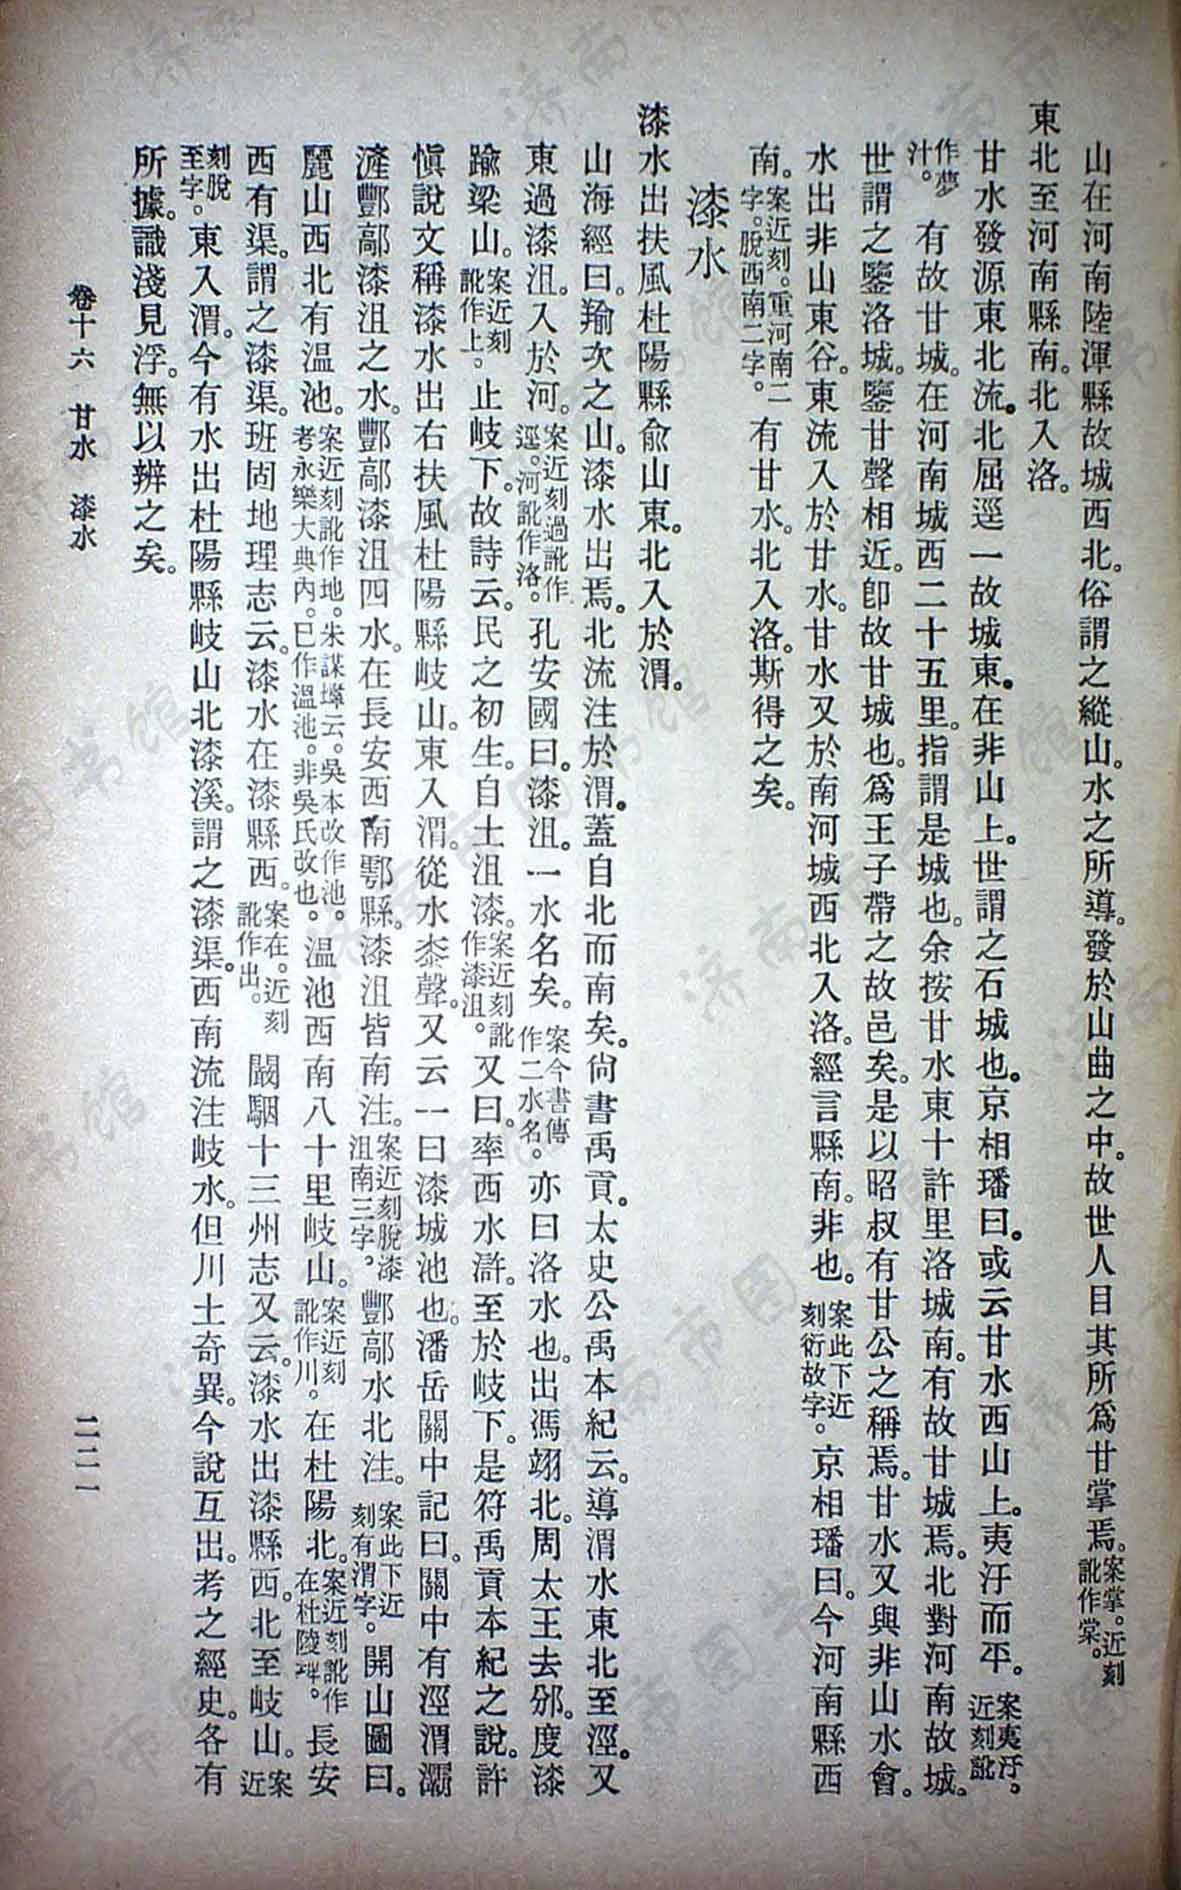 山在河南陸渾縣故城西北。俗謂之縱山。水之所導。發於山曲之中。故世人目其所爲甘掌焉。案掌。近刻訛作棠。
東北至河南縣南。北入洛。
甘水發源東北流。北屈逕一故城東。在非山上。世謂之石城也。京相璠曰。或云甘水西山上。夷汙而平。案夷汙。近刻訛
作夢汁。有故甘城。在河南城西二十五里。指謂是城也。余按甘水東十許里洛城南。有故甘城焉。北對河南故城。
世謂之鑒洛城。鑒甘聲相近。卽故甘城也。爲王子帶之故邑矣。是以昭叔有甘公之稱焉。甘水又與非山水會。
水出非山東谷。東流入於甘水。甘水又於南河城西北入洛。經言縣南。非也。案此下近刻衍故字。京相璠曰。今河南縣西
南。案近刻。重河南二字。脫西南二字。有甘水。北入洛。斯得之矣。
漆水
漆水出扶風杜陽縣俞山東。北入於渭。
山海經曰。羭次之山。漆水出焉。北流注於渭。蓋自北而南矣。尙書禹貢。太史公禹本紀云。導渭水東北至涇。又
東過漆沮。入於河。案近刻過訛作逕。河訛作洛。孔安國曰。漆沮。一水名矣。案今書傳作二水名。亦曰洛水也。出馮翊北。周太王去邠。度漆
踰梁山。案近刻訛作上。止岐下。故詩云。民之初生。自土沮漆。案近刻訛作漆沮。又曰。率西水滸。至於岐下。是符禹貢本紀之說。許
愼說文稱漆水出右扶風杜陽縣岐山。東入渭。從水桼聲。又云一曰漆城池也。潘岳關中記曰。關中有涇渭灞
滻酆鄗漆沮之水。酆鄗漆沮四水。在長安西南鄠縣。漆沮皆南注。案近刻脫漆沮南三字。酆鄗水北注。案此下近刻有渭字。開山圖曰。
麗山西北有溫池。案近刻訛作地。朱謀㙔云。吳本改作池。考永樂大典內。已作溫池。非吳氏改也。溫池西南八十里岐山。案近刻訛作川。在杜陽北。案近刻訛作在杜陵𡐛。長安
西有渠。謂之漆渠。班固地理志云。漆水在漆縣西。案在。近刻訛作出。闞駰十三州志又云。漆水出漆縣西。北至岐山。案近
刻脫至字。東入渭。今有水出杜陽縣岐山北漆溪。謂之漆渠。西南流注岐水。但川土奇異。今說互出。考之經史。各有
所據。識淺見浮。無以辨之矣。
卷十六 甘水 漆水
二二一